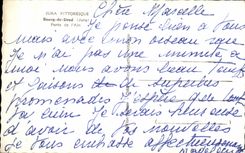 JURA PITTORESQUE
Bourg-de-Sirod (Jura)
Perte de l'Ain
Chère Marcelle
Je pense bien à vous
mais avec mon oiseau que
je n'ai pas une minute à
moi nous avons beau temps
et faisons de superbes
promenades j'espère de
je serais heureuse
d'avoir de vos nouvelles
Je vous embrasse affectueusement
Madeleine